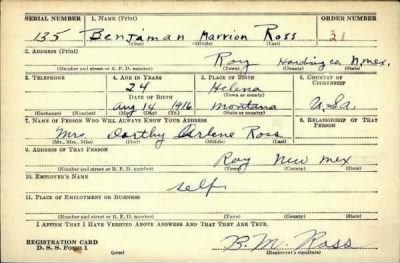 SERIAL NUMBER 1. NAME (Print) ORDER NUMBER
135 Benjaman Marrion Ross 31
(First) (Middle) (Last)
2. ADDRESS (Print)
Roy Harding co. N. mex.
(Number and street or R. F. D. number) (Town) (County) (State)
3. TELEPHONE 4. AGE IN YEARS 5. PLACE OF BIRTH 6. COUNTRY OF CITIZENSHIP
24 Helena
DATE OF BIRTH (Town or county)
Aug 14 1916 Montana U.S.a.
(Exchange) (Number) (Mo.) (Day) (Yr.) (State or country)
7. NAME OF PERSON WHO WILL ALWAYS KNOW YOUR ADDRESS 8. RELATIONSHIP OF THAT PERSON
Mrs. Dorthy Arlene Ross
(Mr., Mrs., Miss) (First) (Middle) (Last)
9. ADDRESS OF THAT PERSON
Roy New mex
(Number and street or R. F. D. number) (Town) (County) (State)
10. EMPLOYER'S NAME
self
11. PLACE OF EMPLOYMENT OR BUSINESS
(Number and street or R. F. D. number) (Town) (County) (State)
I AFFIRM THAT I HAVE VERIFIED ABOVE ANSWERS AND THAT THEY ARE TRUE.
REGISTRATION CARD
D. S. S. Form 1 (over) B. M. Ross
(Registrant's signature)